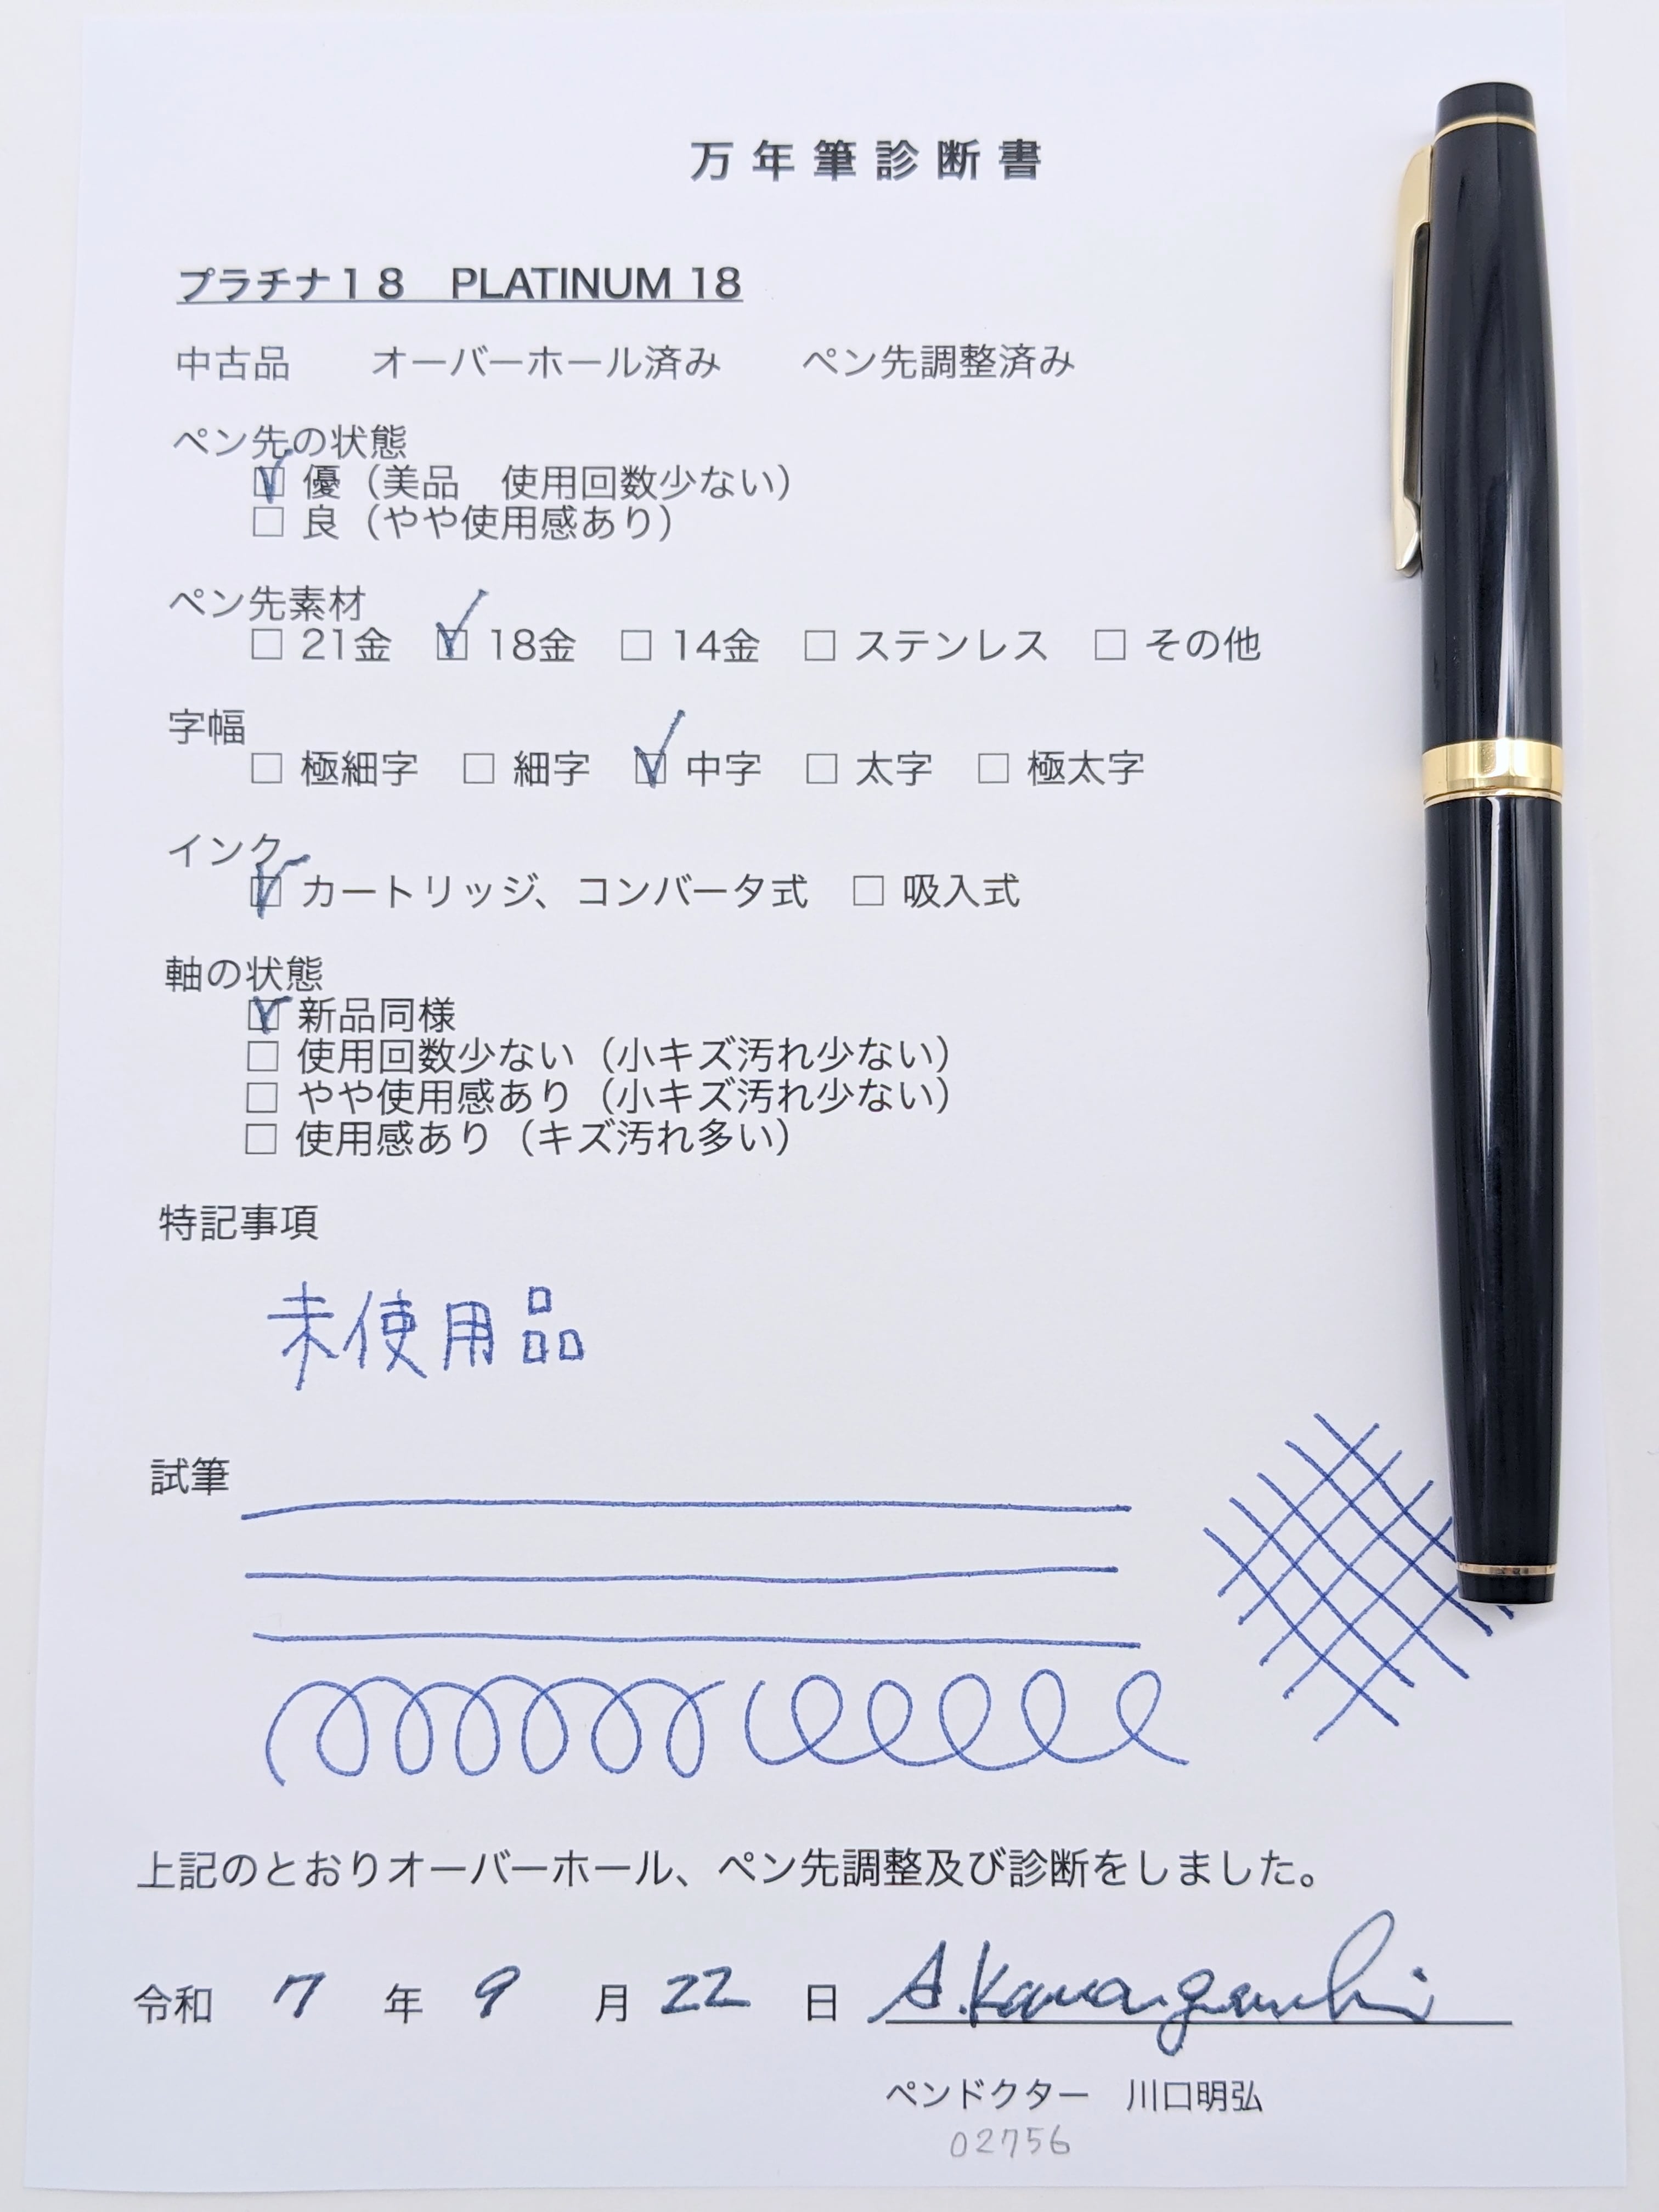 万年筆診断書
プラチナ１８　PLATINUM 18
中古品　　オーバーホール済み　　ペン先調整済み
ペン先の状態
☑ 優（美品　使用回数少ない）
☐ 良（やや使用感あり）
ペン先素材
☐ 21金　☑ 18金　☐ 14金　☐ ステンレス　☐ その他
字幅
☐ 極細字　☐ 細字　☑ 中字　☐ 太字　☐ 極太字
インク
☑ カートリッジ、コンバータ式　☐ 吸入式
軸の状態
☑ 新品同様
☐ 使用回数少ない（小キズ汚れ少ない）
☐ やや使用感あり（小キズ汚れ少ない）
☐ 使用感あり（キズ汚れ多い）
特記事項
未使用品
試筆
上記のとおりオーバーホール、ペン先調整及び診断をしました。
令和 7 年 9 月 22 日 A.Kawaguchi
ペンドクター　川口明弘
02756